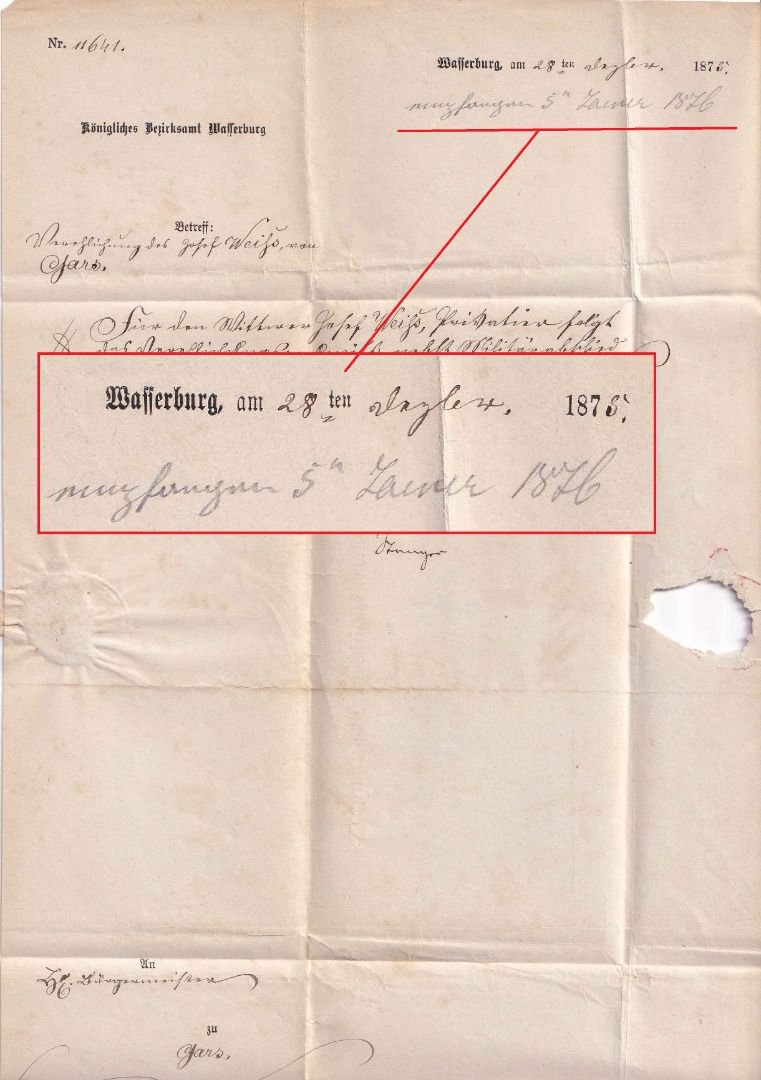 Nr. 11641.
Wasserburg, am 28 ten Dezbr. 1875.
empfangen 5n Jaener 1876
Königliches Bezirksamt Wasserburg
Betreff:
Verehlichung des Josef Weiß, von
Gars.
Für den Wittwer Josef Weiß, Privatier folgt
das nebst Militärabschied
Wasserburg, am 28 ten Dezbr. 1875.
empfangen 5n Jaener 1876
An
Bürgermeister
zu
Gars.